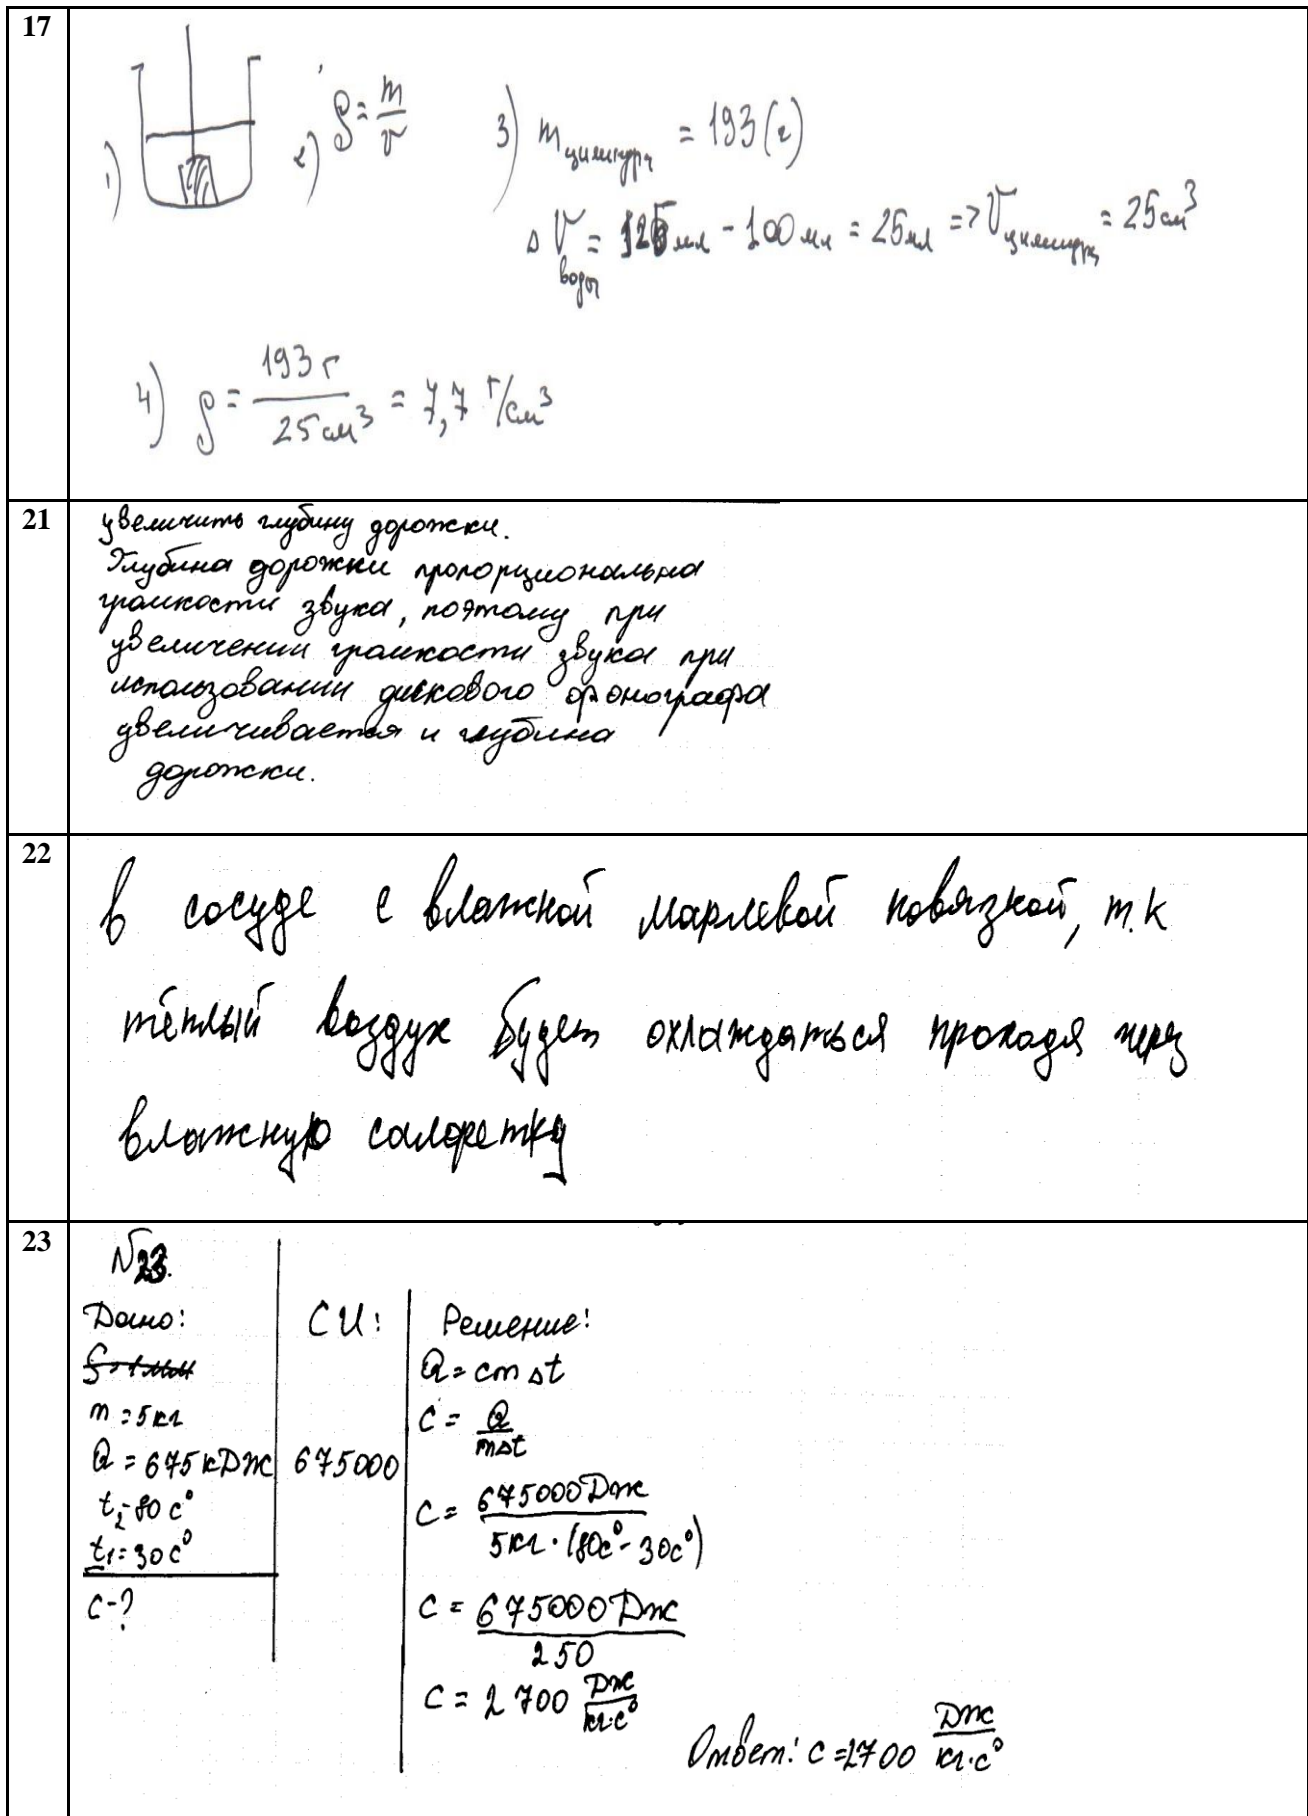 17
1)
2) ρ = m/V
3) m цилиндра = 193 (г)
ΔV воды = 125 мл - 100 мл = 25 мл => V цилиндра = 25 см³
4) ρ = 193 г / 25 см³ = 7,7 г/см³
21
увеличить глубину дорожки.
Глубина дорожки пропорциональна
громкости звука, поэтому при
увеличении громкости звука при
использовании дискового фонографа
увеличивается и глубина
дорожки.
22
в сосуде с влажной марлевой повязкой, т.к
тёплый воздух будет охлаждаться проходя через
влажную салфетку
23
N23.
Дано: СИ: Решение:
Q = cmΔt
m = 5кг
c = Q/mΔt
Q = 675 кДж 675000
t₂ = 80 c°
c = 675000 Дж / 5кг · (80c° - 30c°)
t₁ = 30 c°
c - ?
c = 675000 Дж / 250
c = 2 700 Дж/кг·c°
Ответ: c = 2700 Дж/кг·c°